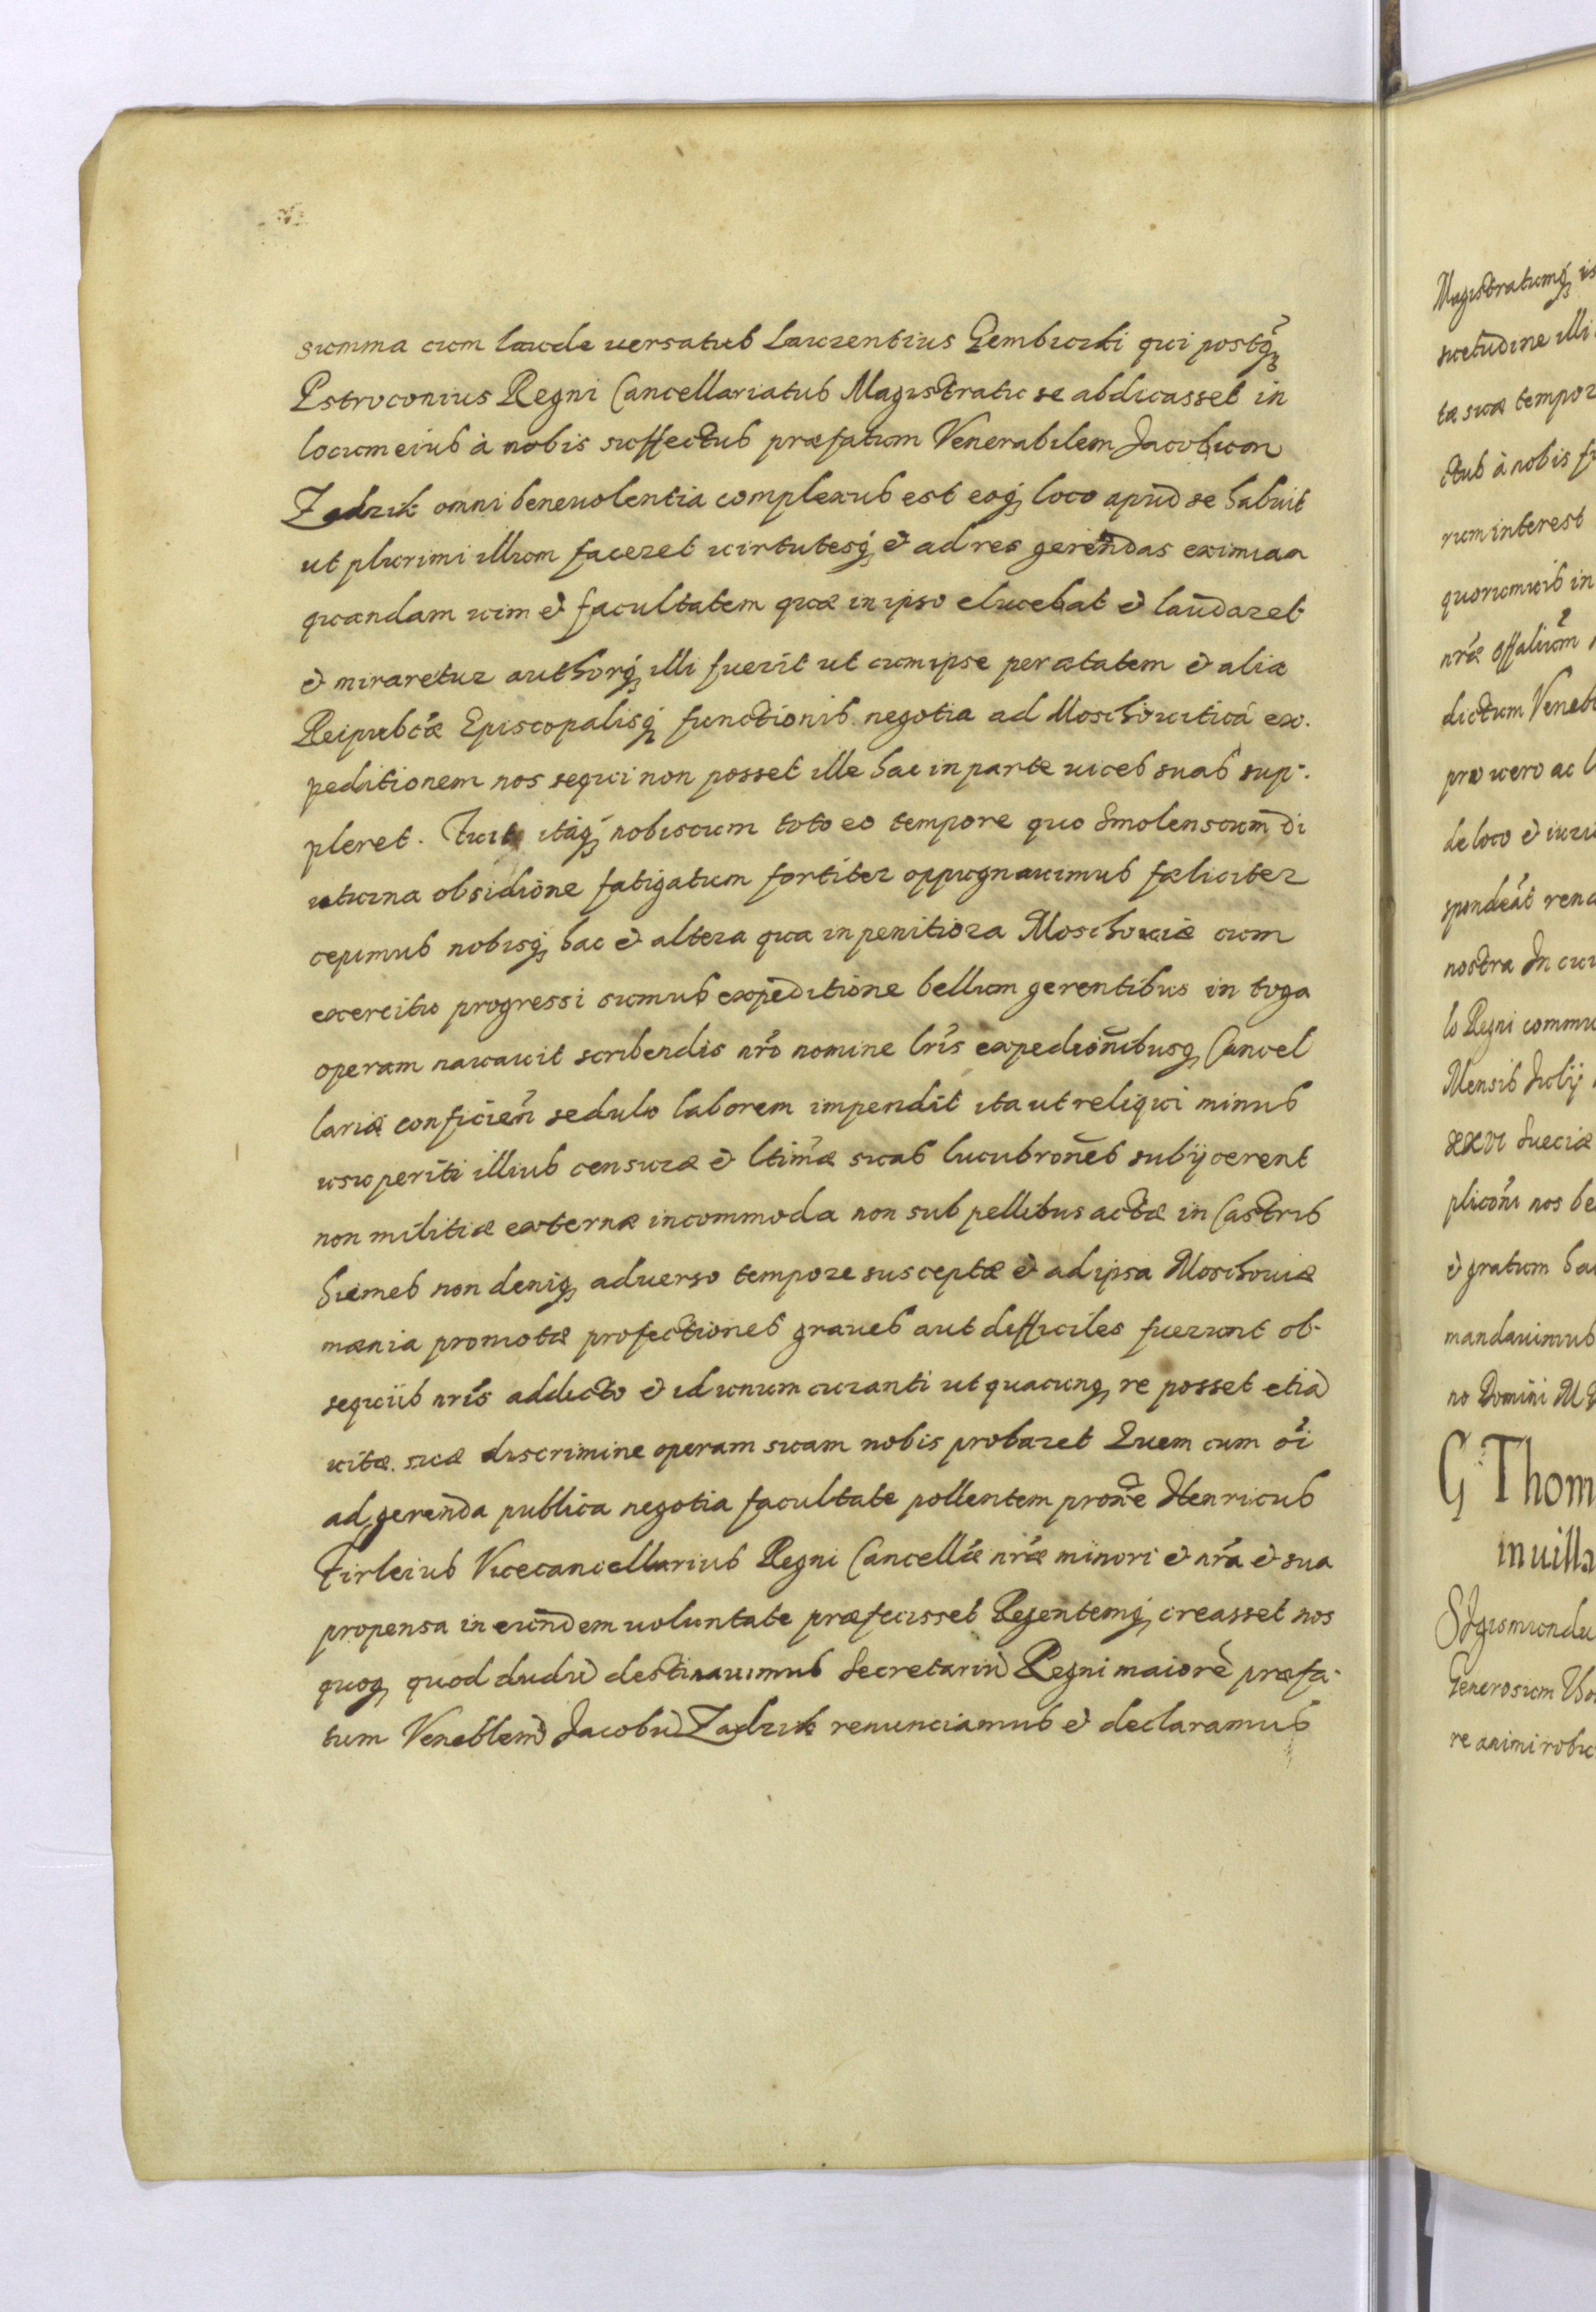 summa cum laude uersatus Laurentius Gembicki qui postq́ꝫ
Pstroconius Regni Cancellariatus Magistratu se abdicasset in
locum eius à nobis suffectus præfatum Venerabilem Jacobum
Zadzik omni beneuolentia complexus est eoq́ꝫ loco apud se habuit
ut plurimi illum faceret uirtutesq́ꝫ & ad res gerendas eximiam
quandam uim & facultatem quæ in ipso elucebat & laudaret
& miraretur authorq́ꝫ illi fuerit ut cum ipse per ætatem & alia
Reipubcæ Episcopalisq́ꝫ functionis negotia ad Moschouiticā ex-
peditionem nos sequi non posset ille hac in parte uices suas sup-
pleret. Fuit itáqꝫ nobiscum toto eo tempore quo Smolenscum di
uturna obsidione fatigatum fortiter oppugnauimus fæliciter
cepimus nobisq́ꝫ hac & altera qua in penitiora Moschouiæ cum
exercitu progressi sumus expeditione bellum gerentibus in toga
operam nauauit scribendis nr̃o nomine lr̃is expedionibusqꝫ Cancel
lariæ conficien̄ sedulo laborem impendit ita ut reliqui minus
usu periti illius censuræ & ltimæ suas lucubrones subijcerent
non militiæ externæ incommoda non sub pellibus actæ in Castris
hiemes non deniqꝫ aduerso tempore susceptæ & ad ipsa Moschouiæ
mænia promotæ profectiones graues aut difficiles fuerunt ob-
sequiis nr̃is addicto & id unum curanti ut quacunqꝫ re posset etiā
uitæ suæ discrimine operam suam nobis probaret Quem cum oĩ
ad gerenda publica negotia facultate pollentem prone Henricus
Firleius Vicecancellarius Regni Cancellæ nr̃æ minori & nr̃a & sua
propensa in eundem uoluntate præfecisset Regentemq́ꝫ creasset nos
quoqꝫ quod dudū destinauimus Secretariū Regni maiorē præfa-
tum Veneblem Jacobū Zadzik renunciamus & declaramus
Magistratumq́ꝫ
suetudine illi
tæ suæ tempor
ctus à nobis
rum interest
quorumuis in
nr̃æ offalium
dictum Veneb
pro uero ac
de loco & iuri
spondeāt
nostra In cui
lo Regni commu
Mensis Julij
xxvi Sueciæ
pliconi nos be
& gratum ha
mandauimus
no Domini M D
G Thom
in uilla
Sigismundu
Generosum Tho
re animi robu